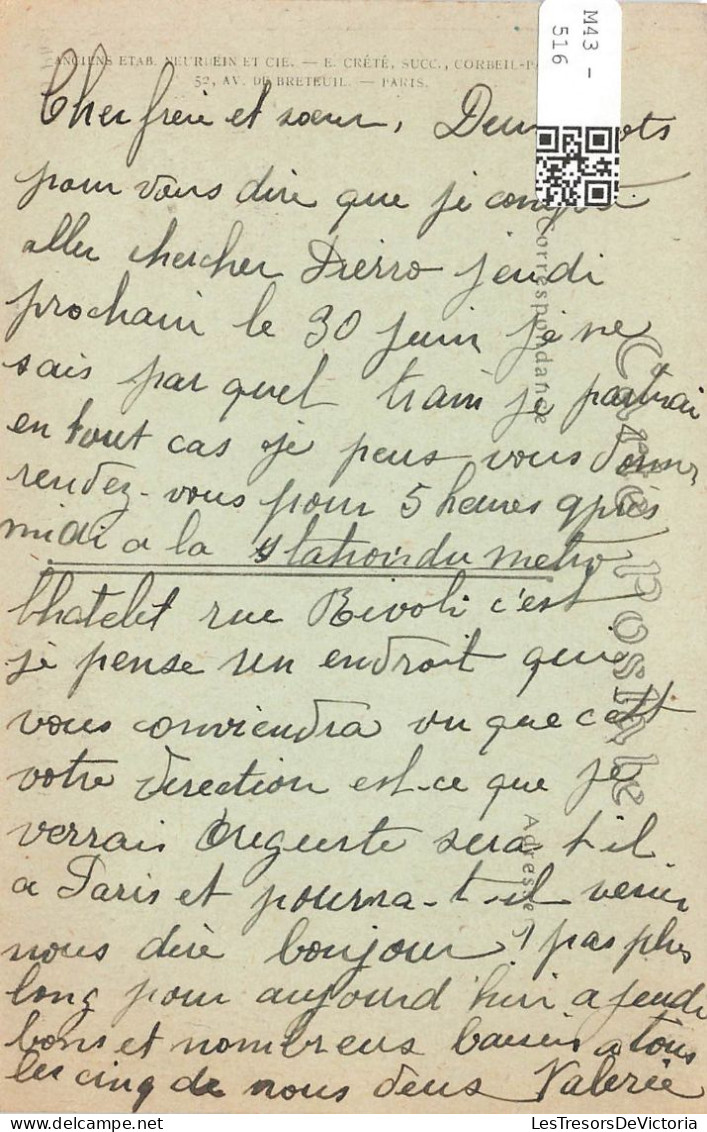 ANCIENS ETAB. NEURDEIN ET CIE. — E. CRÉTÉ, SUCC., CORBEIL-P
52, AV. DE BRETEUIL. — PARIS.
M43 -
516
Cher frère et sœur, Deux mots
pour vous dire que je compte
aller chercher Pierro jeudi
prochain le 30 juin je ne
sais par quel train je partirai
en tout cas je peus vous donner
rendez-vous pour 5 heures après
midi a la station du metro
Chatelet rue Rivoli c'est
je pense un endroit qui
vous conviendra vu que c'est
votre direction est-ce que je
verrais Auguste sera t-il
a Paris et pourra-t-il venir
nous dire bonjour ? pas plus
long pour aujourd'hui a jeudi
bons et nombreux baisers a tous
les cinq de nous deux Valérie
Carte Postale
Correspondance
Adresse
LesTresorsDeVictoria - www.delcampe.net